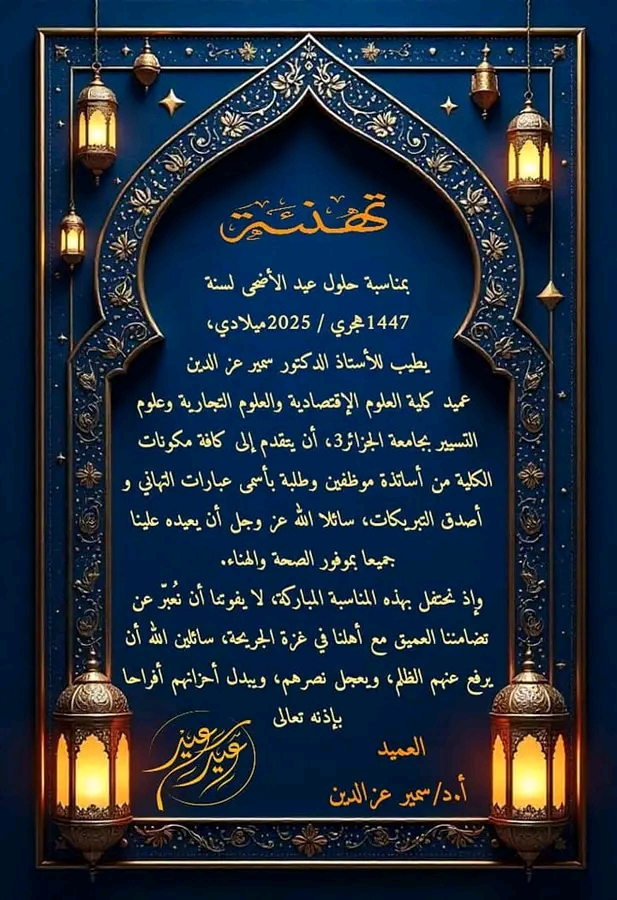 تهنئة
بمناسبة حلول عيد الأضحى لسنة
1447هجري / 2025ميلادي،
يطيب للأستاذ الدكتور سمير عز الدين
عميد كلية العلوم الإقتصادية والعلوم التجارية وعلوم
التسيير بجامعة الجزائر3، أن يتقدم إلى كافة مكونات
الكلية من أساتذة موظفين وطلبة بأسمى عبارات التهاني و
أصدق التبريكات، سائلا الله عز وجل أن يعيده علينا
جميعا بموفور الصحة والهناء.
وإذ نحتفل بهذه المناسبة المباركة، لا يفوتنا أن نُعبّر عن
تضامننا العميق مع أهلنا في غزة الجريحة، سائلين الله أن
يرفع عنهم الظلم، ويعجل نصرهم، ويبدل أحزانهم أفراحا
بإذنه تعالى
العميد
أ.د/سمير عزالدين
عيد سعيد